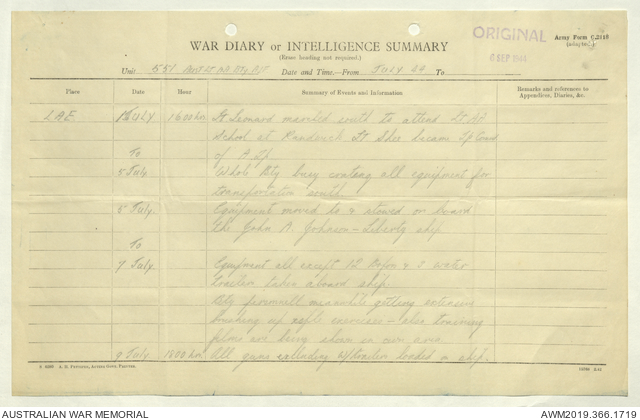 ORIGINAL
6 SEP 1944
Army Form C.2118
(adapted.)
WAR DIARY or INTELLIGENCE SUMMARY
(Erase heading not required.)
Unit 551 Date and Time—From July 44 To
Place Date Hour Summary of Events and Information Remarks and references to Appendices, Diaries, &c.
LAE 1 July 1600 hrs Lt Leonard marched south to attend Lt AA
School at Randwick Lt Shee became Tp Comd
To of A Tp
5 July Whole Bty busy crating all equipment for
transportation south
5 July Equipment moved to & stowed on board
the John A. Johnson - Liberty ship
To
7 July Equipment all except 12 Bofors & 3 water
trailers taken aboard ship.
Bty personnel meanwhile getting extensive
brushing up exercises - also training
films are being shown in own area
9 July 1800 hrs All guns loaded on ship.
AUSTRALIAN WAR MEMORIAL
AWM2019.366.1719